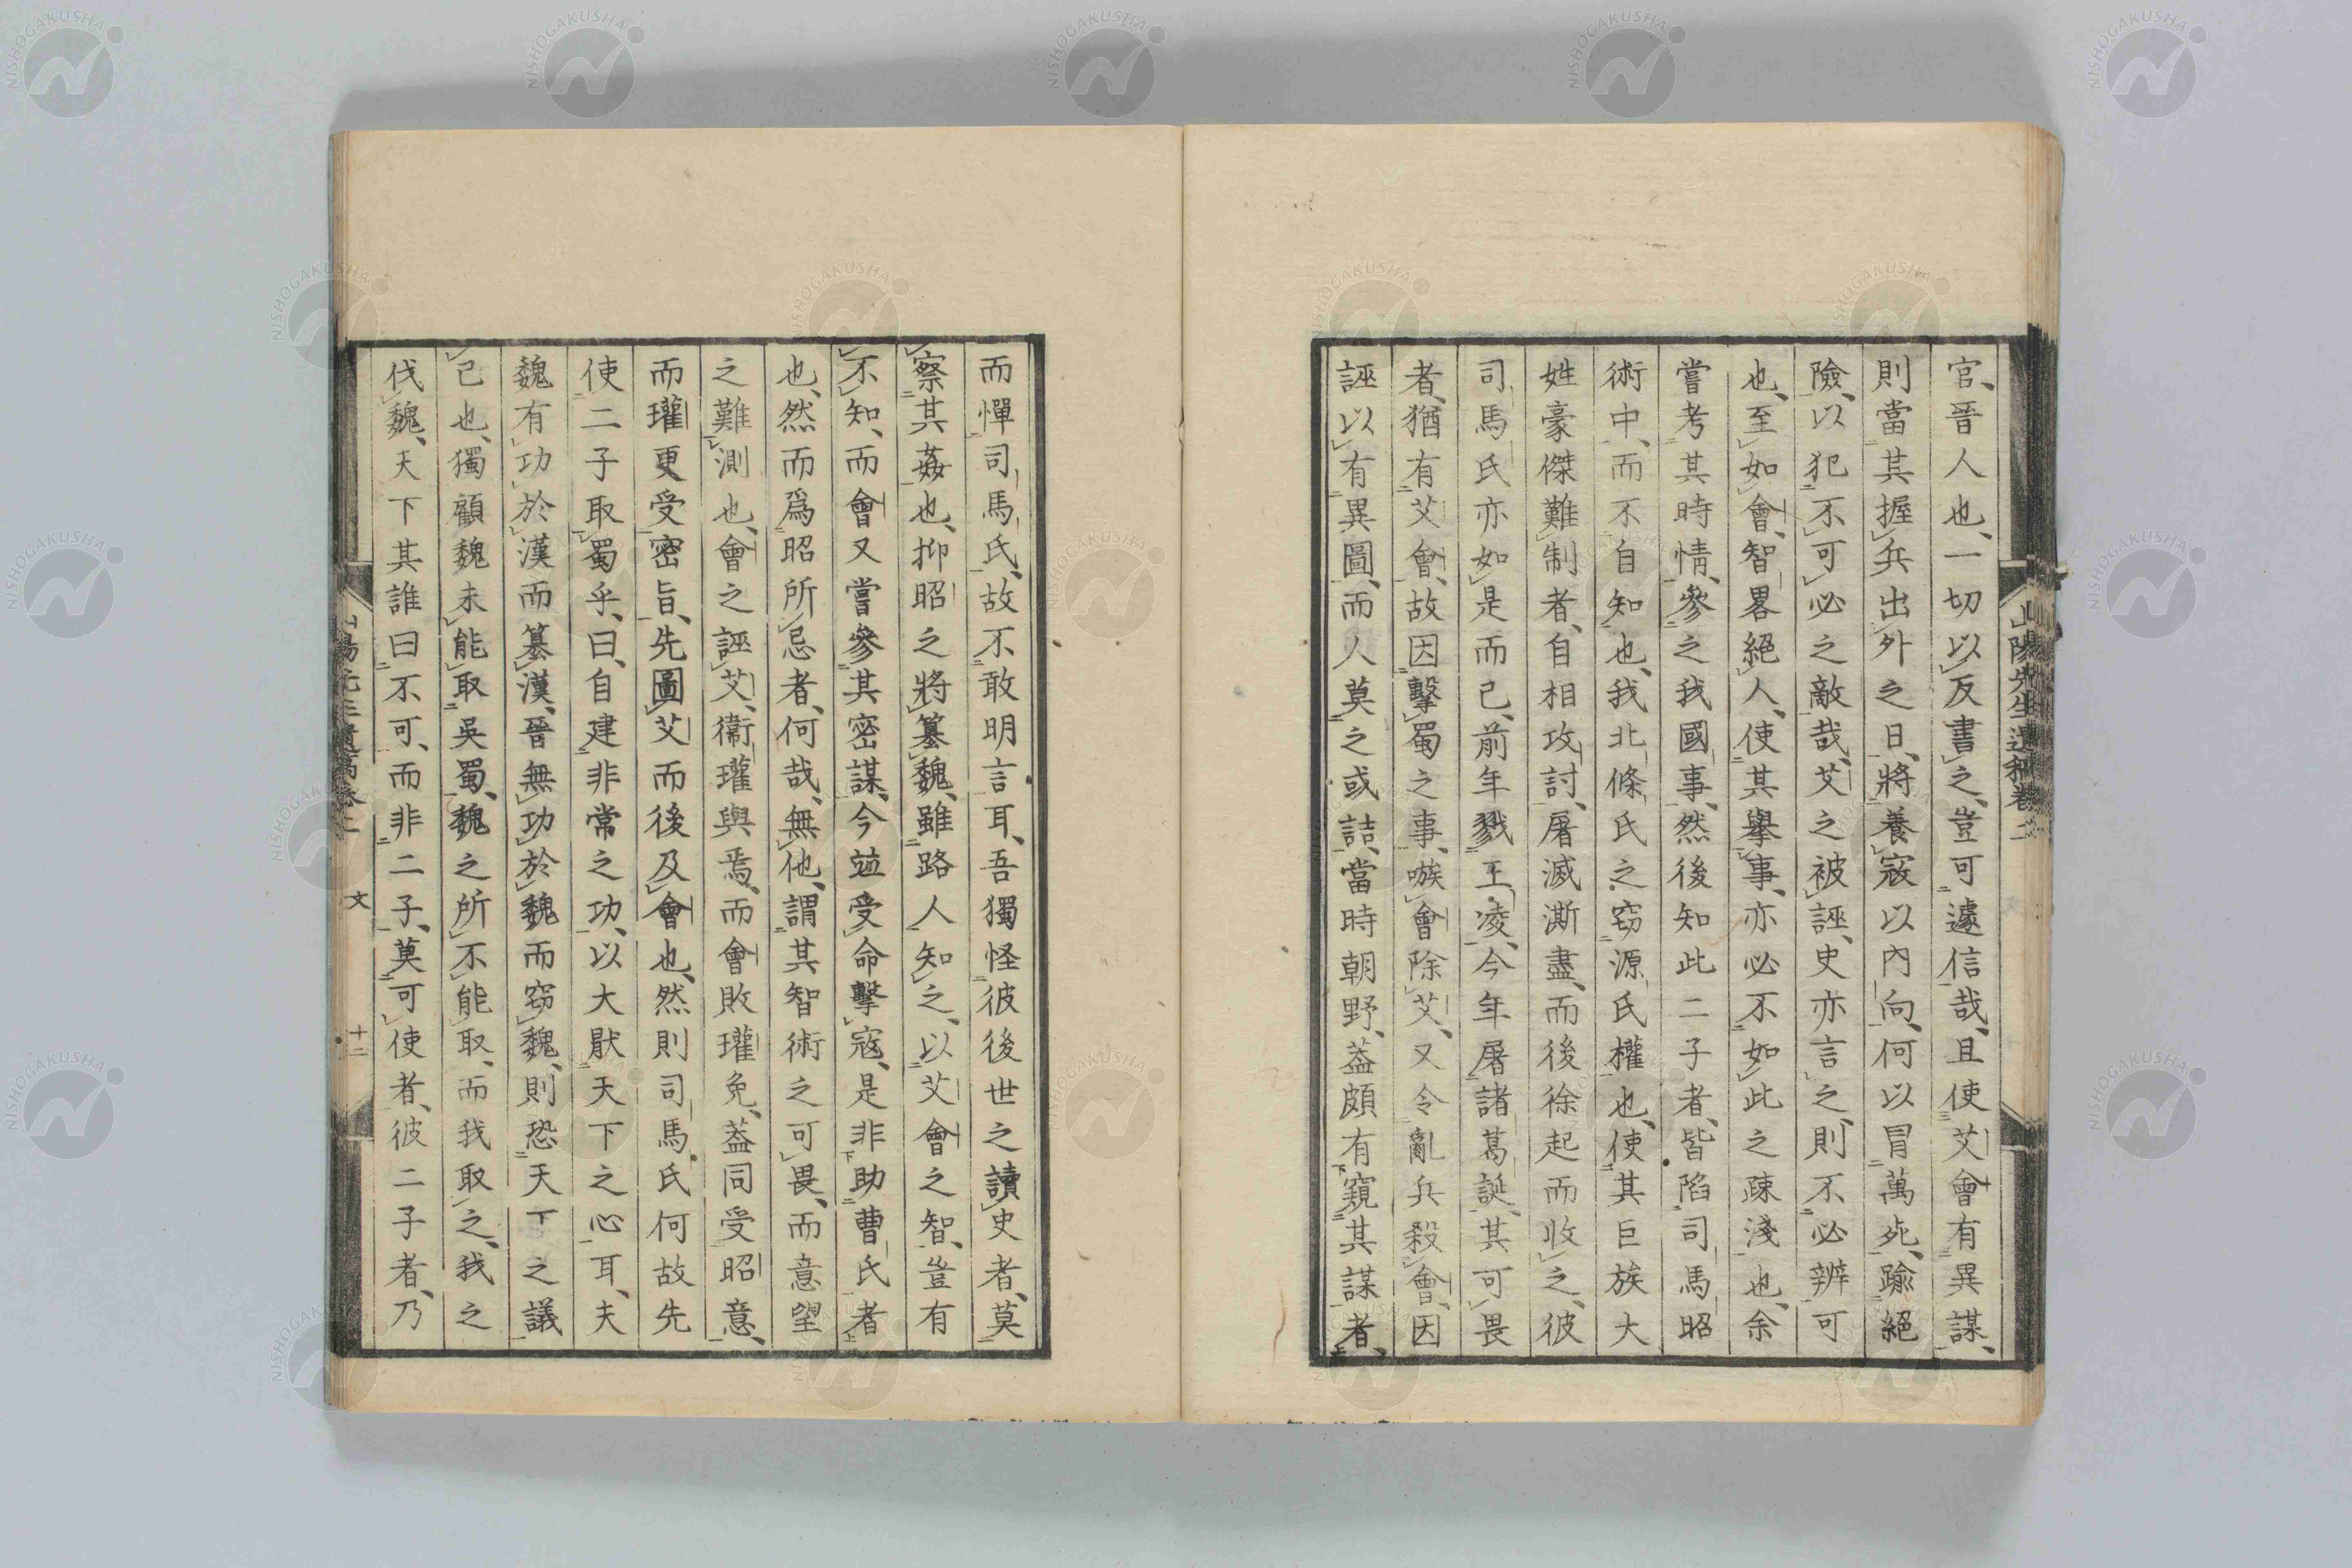 官、晉人也、一切以反書之、豈可遽信哉、且使艾會有異謀、
則當其握兵出外之日、將養寇以內向、何以冒萬死、踰絕
險、以犯不可必之敵哉、艾之被誣、史亦言之、則不必辨可
也、至如會、智畧絕人、使其舉事、亦必不如此之疎淺也、余
嘗考其時情、參之我國事、然後知此二子者、皆陷司馬昭
術中、而不自知也、我北條氏之窃源氏權也、使其巨族大
姓豪傑難制者、自相攻討、屠滅澌盡、而後徐起而收之、彼
司馬氏亦如是而已、前年戮王凌、今年屠諸葛誕、其可畏
者、猶有艾會、故因擊蜀之事、嗾會除艾、又令亂兵殺會、因
誣以有異圖、而人莫之或詰、當時朝野、葢頗有窺其謀者、
而憚司馬氏、故不敢明言耳、吾獨怪彼後世之讀史者、莫
察其姦也、抑昭之將簒魏、雖路人知之、以艾會之智、豈有
不知、而會又嘗參其密謀、今竝受命擊寇、是非助曹氏者
也、然而爲昭所忌者、何哉、無他、謂其智術之可畏、而意望
之難測也、會之誣艾、衞瓘與焉、而會敗瓘免、葢同受昭意、
而瓘更受密旨、先圖艾而後及會也、然則司馬氏何故先
使二子取蜀乎、曰、自建非常之功、以大厭天下之心耳、夫
魏有功於漢而簒漢、晉無功於魏而窃魏、則恐天下之議
己也、獨顧魏未能取吳蜀、魏之所不能取、而我取之、我之
伐魏、天下其誰曰不可、而非二子、莫可使者、彼二子者、乃
山陽先生遺稿卷二
文
十二
NISHOGAKUSHA